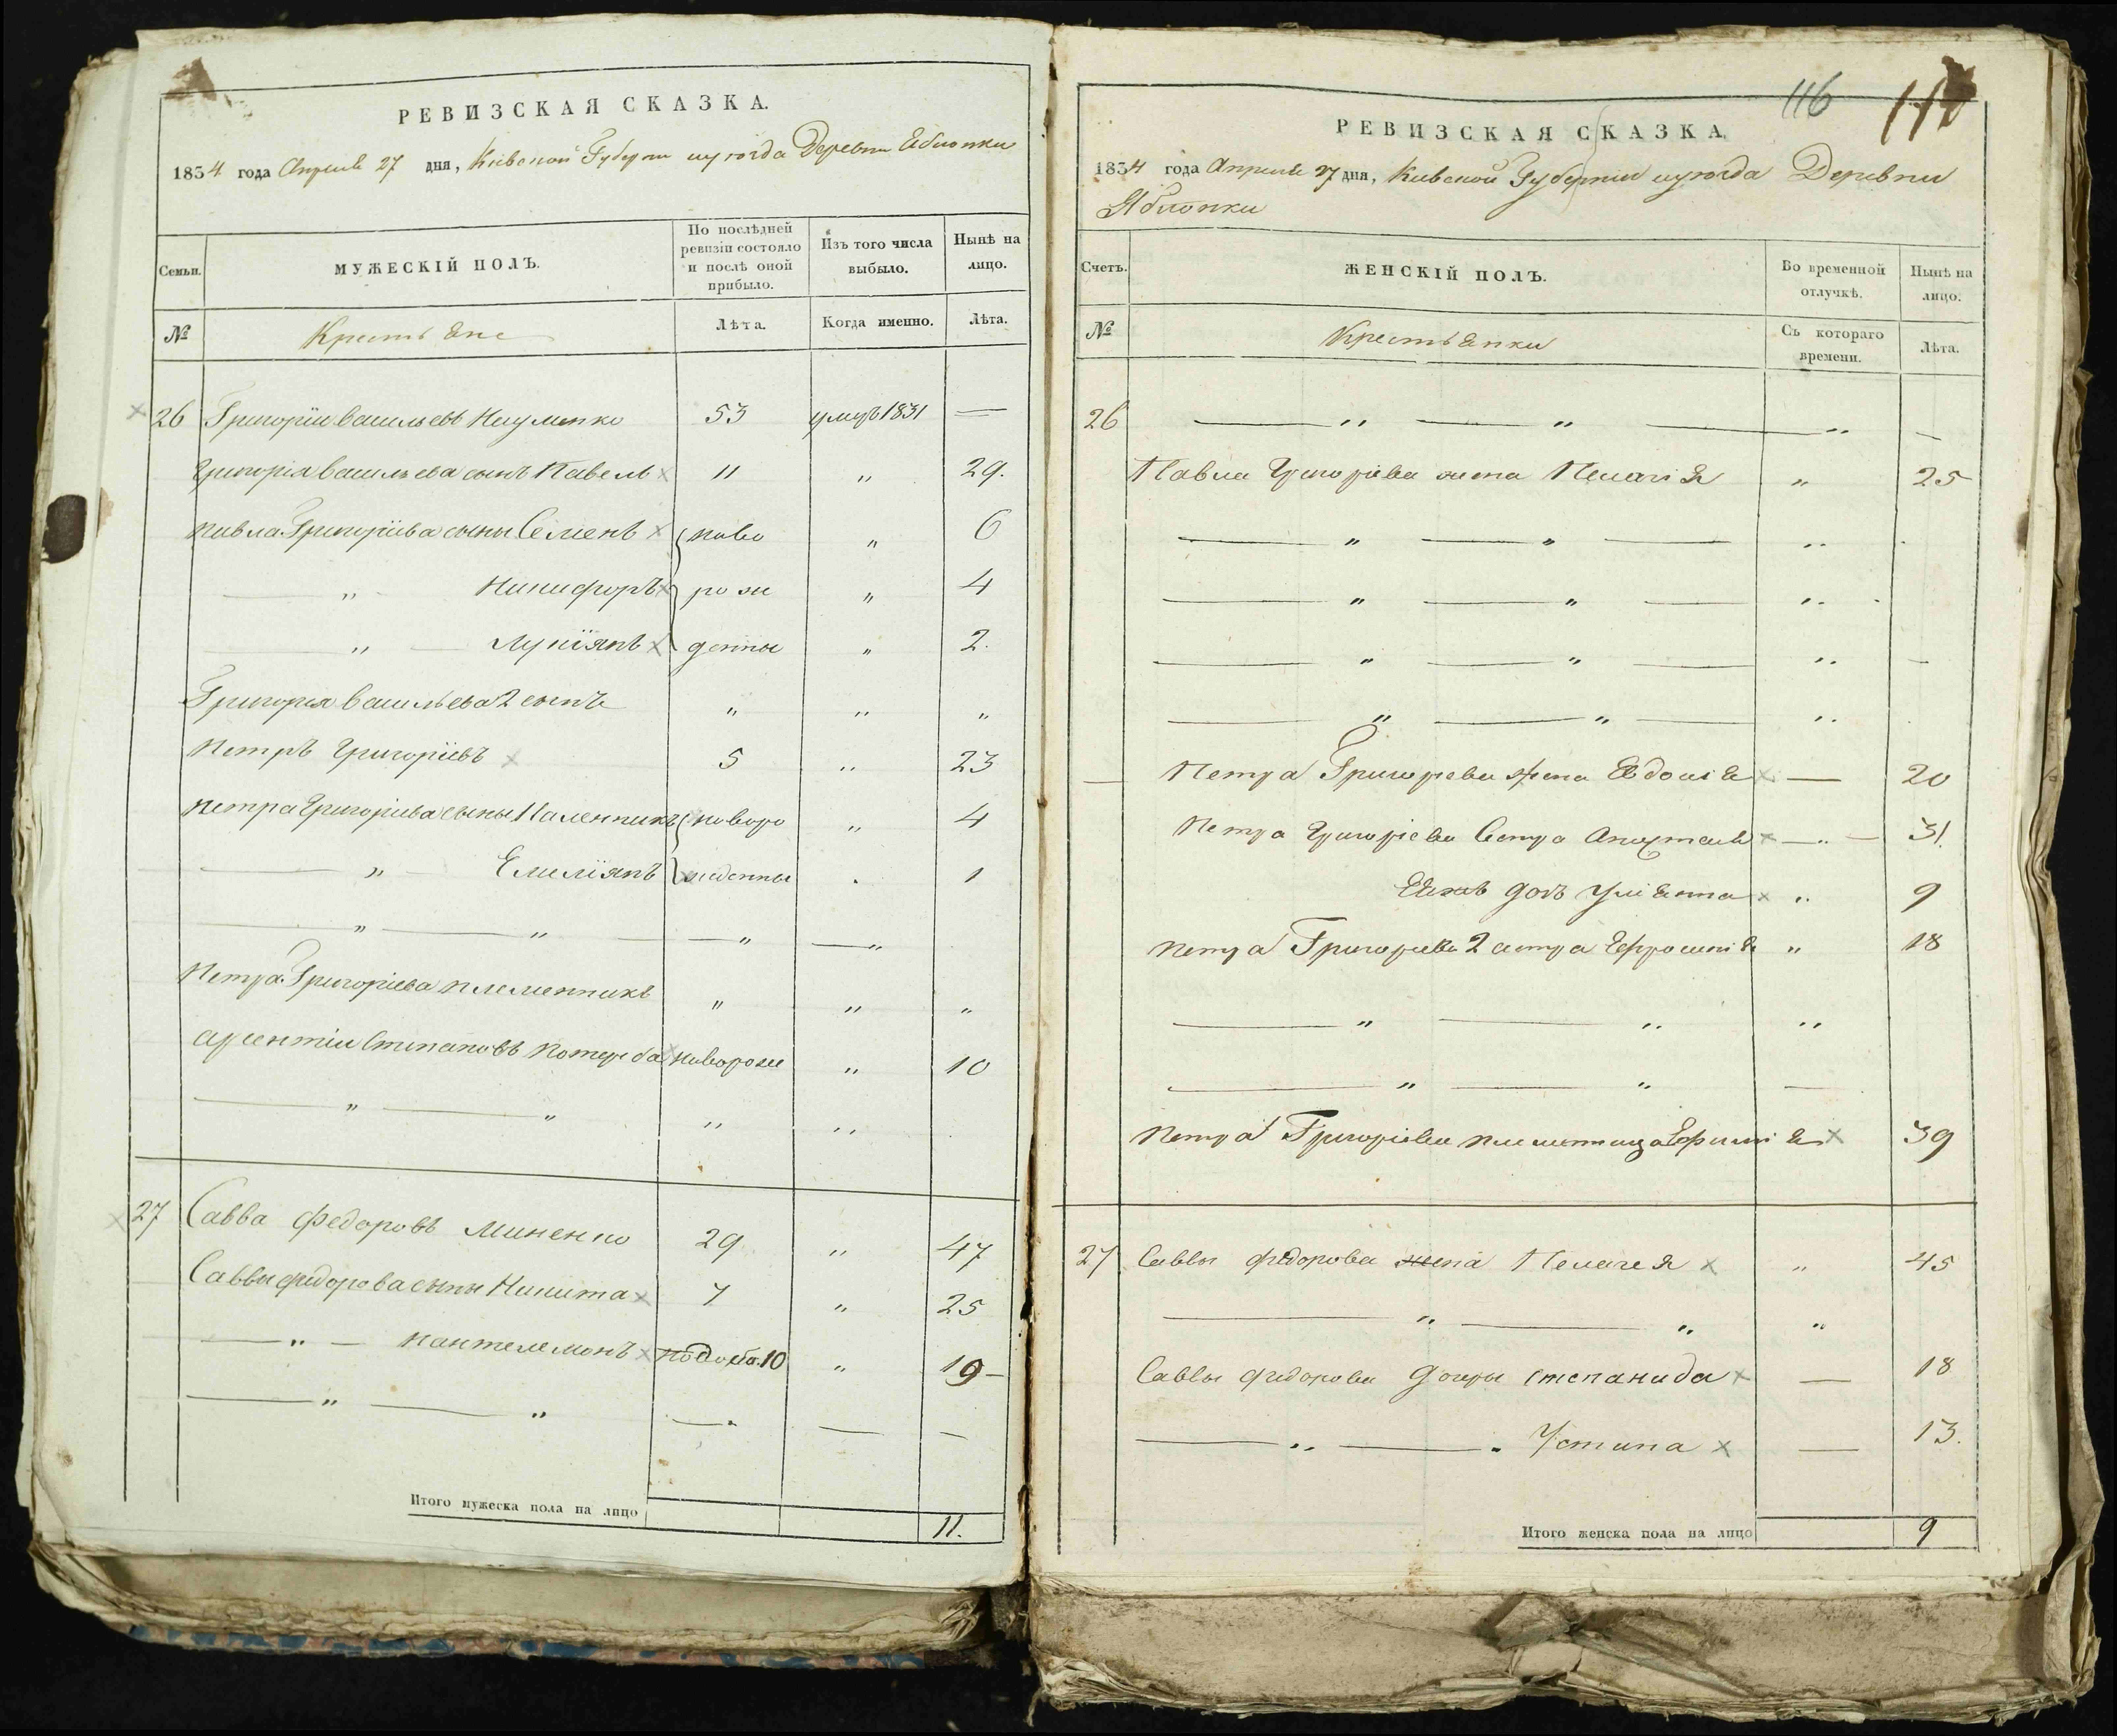 РЕВИЗСКАЯ СКАЗКА.
1834 года Апреля 27 дня, Киевской Губерни и уезда Деревни Яблонки
Семьи.
МУЖЕСКІЙ ПОЛЪ.
По послѣдней ревизіи состояло и послѣ оной прибыло.
Изъ того числа выбыло.
Нынѣ на лицо.
№
Крестьяне
Лѣта.
Когда именно.
Лѣта.
26 Григорїи Васильевъ Науменко 53 умръ 1831 —
Григорія Васильева сынъ Павелъ 11 " 29.
Павла Григорїева сыны Семенъ ново " 6
" Никифоръ рож " 4
" Лукїянъ денны " 2.
Григорія Васильева 2 сынъ " " "
Петръ Григорїевъ 5 " 23
Петра Григоріева сыны Каленникъ новоро " 4
" Емелїянъ жденны 1
" " " "
Петра Григоріева племенникъ " " "
Арсентіи Степановъ новорож " 10
" " " "
27 Савва Федоровъ Миненко 29 " 47
Саввы Федорова сыны Никита 7 " 25
" Пантелемонъ 10 " 19
" " "
Итого мужеска пола на лицо 11.
116
РЕВИЗСКАЯ СКАЗКА.
1834 года Апреля 27 дня, Киевской Губерніи и уезда Деревни
Яблонки
Счетъ.
ЖЕНСКІЙ ПОЛЪ.
Во временной отлучкѣ.
Нынѣ на лицо.
№
Крестьянки
Съ котораго времени.
Лѣта.
26 " " " —
Павла Григоріева жена Пелагія " 25
" " "
" " "
" " "
" " "
Петра Григорева жена Евдокія — 20
Петра Григоріева Сестра 31
дочь Уліянна " 9
Петра Григориева 2 сестра Ефросинія " 18
" " "
" " —
Петра Григоріева племенница 39
27 Саввы Федорова жена Пелагея " 45
" " "
Саввы Федорова дочеры Степанида — 18
" Устина — 13.
Итого женска пола на лицо 9